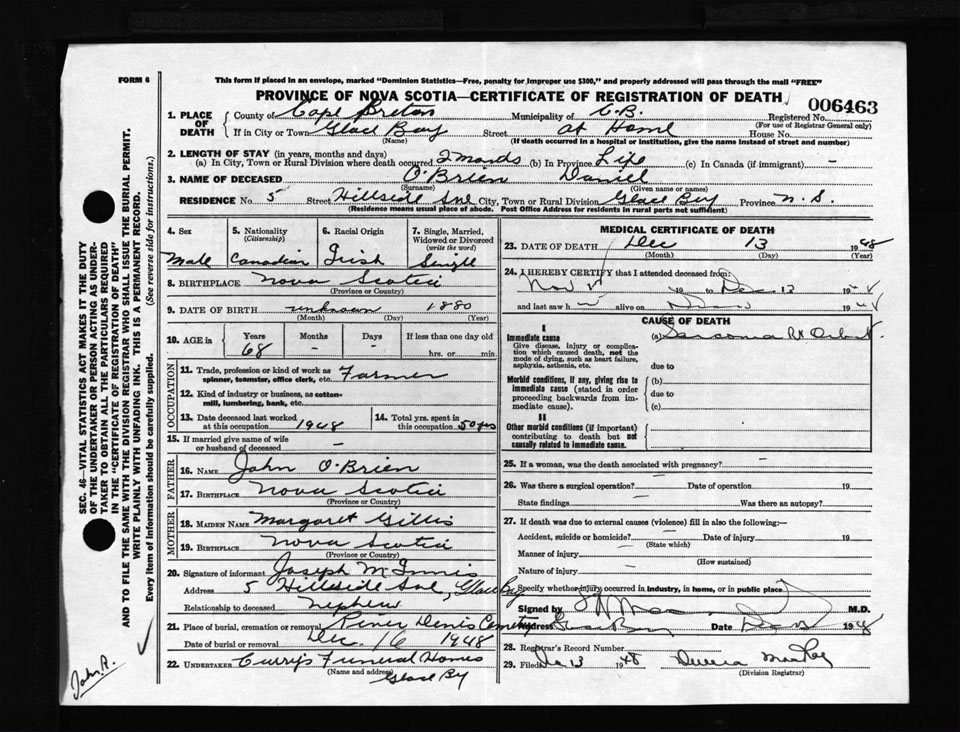 FORM 6
This form if placed in an envelope, marked "Dominion Statistics—Free, penalty for improper use $300," and properly addressed will pass through the mail "FREE"
PROVINCE OF NOVA SCOTIA—CERTIFICATE OF REGISTRATION OF DEATH
006463
1. PLACE OF DEATH { County of Cape Breton Municipality of C.B. Registered No.
(For use of Registrar General only)
If in City or Town Glace Bay Street at Home House No.
(Name) (If death occurred in a hospital or institution, give the name instead of street and number)
2. LENGTH OF STAY (in years, months and days)
(a) In City, Town or Rural Division where death occurred 2 (b) In Province Life (c) In Canada (if immigrant) -
3. NAME OF DECEASED O'Brien Daniel
(Surname) (Given name or names)
RESIDENCE No. 5 Street Hillside Ave City, Town or Rural Division Glace Bay Province N.S.
(Residence means usual place of abode. Post Office Address for residents in rural parts not sufficient)
4. Sex Male
5. Nationality (Citizenship) Canadian
6. Racial Origin Irish
7. Single, Married, Widowed or Divorced (write the word) Single
8. BIRTHPLACE Nova Scotia
(Province or Country)
9. DATE OF BIRTH unknown 1880
(Month) (Day) (Year)
10. AGE in { Years 68 Months - Days - If less than one day old
hrs. or min.
OCCUPATION
11. Trade, profession or kind of work as spinner, teamster, office clerk, etc. Farmer
12. Kind of industry or business, as cotton-mill, lumbering, bank, etc.
13. Date deceased last worked at this occupation 1948
14. Total yrs. spent in this occupation 50 yrs
15. If married give name of wife or husband of deceased -
FATHER
16. NAME John O'Brien
17. BIRTHPLACE Nova Scotia
(Province or Country)
MOTHER
18. MAIDEN NAME Margaret Gillis
19. BIRTHPLACE Nova Scotia
(Province or Country)
20. Signature of informant Joseph McInnis
Address 5 Hillside Ave, Glace Bay
Relationship to deceased nephew
21. Place of burial, cremation or removal River Denis Cemetery
Date of burial or removal Dec 16 1948
22. UNDERTAKER Curry's Funeral Homes
(Name and address) Glace Bay
MEDICAL CERTIFICATE OF DEATH
23. DATE OF DEATH Dec 13 1948
(Month) (Day) (Year)
24. I HEREBY CERTIFY that I attended deceased from:
Nov 19 to Dec 13 1948
and last saw h alive on 1948
CAUSE OF DEATH
I
Immediate cause (a) Sarcoma Rt. Orbit
Give disease, injury or complication which caused death, not the mode of dying, such as heart failure, asphyxia, asthenia, etc.
due to
Morbid conditions, if any, giving rise to immediate cause (stated in order proceeding backwards from immediate cause).
(b)
due to
(c)
II
Other morbid conditions (if important) contributing to death but not causally related to immediate cause.
25. If a woman, was the death associated with pregnancy? -
26. Was there a surgical operation? Date of operation 19
State findings Was there an autopsy?
27. If death was due to external causes (violence) fill in also the following:—
Accident, suicide or homicide? Date of injury 19
(State which)
Manner of injury
(How sustained)
Nature of injury
Specify whether injury occurred in industry, in home, or in public place
Signed by M.D.
Address Glace Bay Date 1948
28. Registrar's Record Number
29. Filed Dec 13 1948
(Division Registrar)
SEC. 46—VITAL STATISTICS ACT MAKES IT THE DUTY
OF THE UNDERTAKER OR PERSON ACTING AS UNDER-
TAKER TO OBTAIN ALL THE PARTICULARS REQUIRED
IN THE "CERTIFICATE OF REGISTRATION OF DEATH"
AND TO FILE THE SAME WITH THE DIVISION REGISTRAR WHO SHALL ISSUE THE BURIAL PERMIT.
WRITE PLAINLY WITH UNFADING INK. THIS IS A PERMANENT RECORD.
Every item of information should be carefully supplied. (See reverse side for instructions.)
John R.